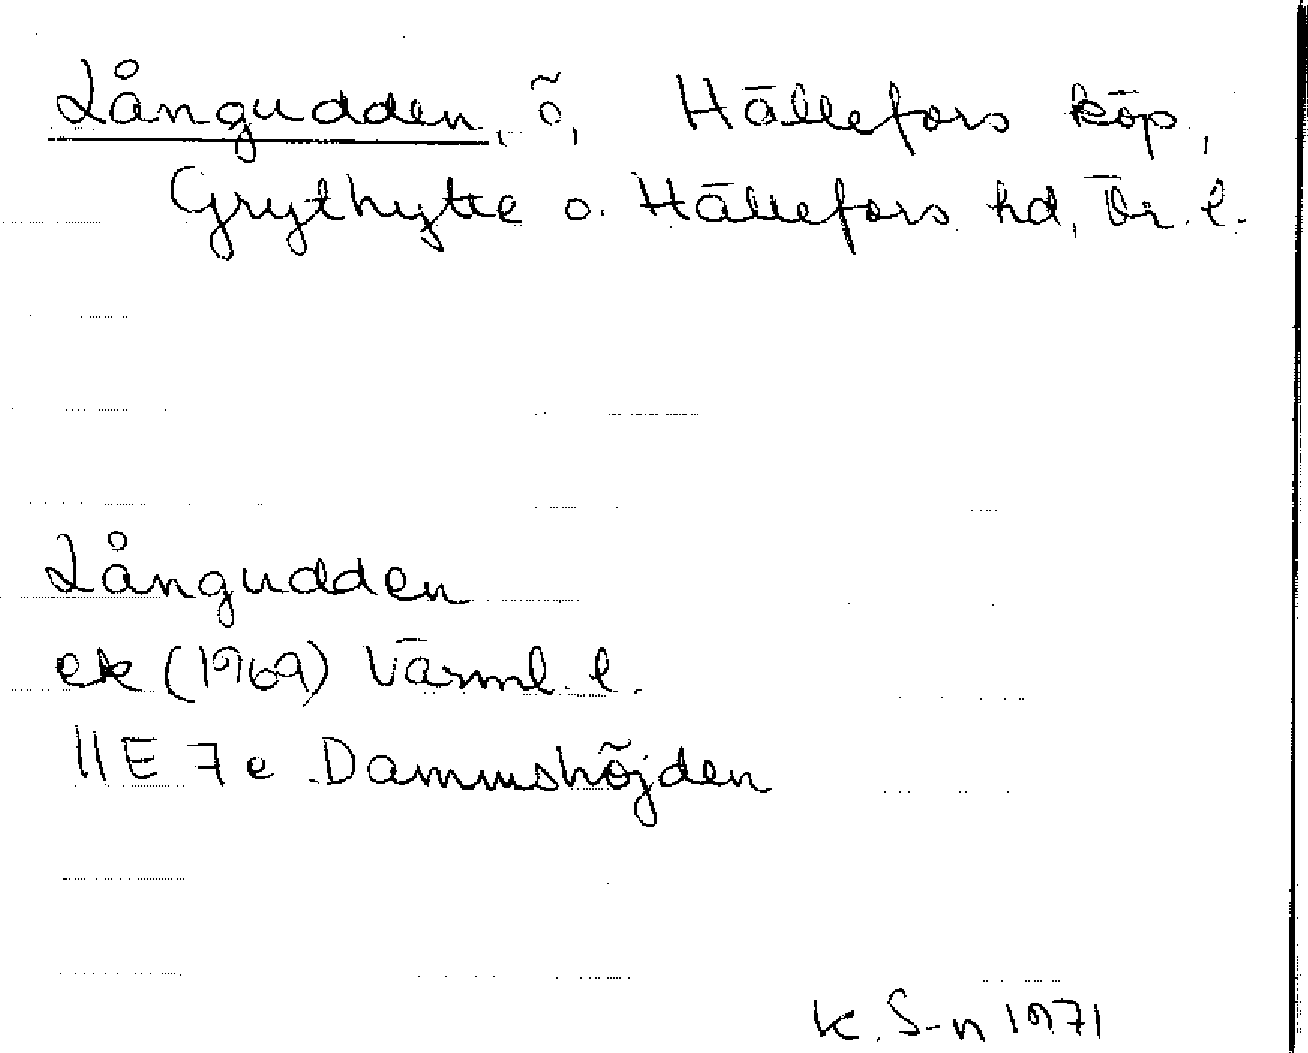 Långudden, ö, Hällefors köp,
Grythytte o. Hällefors hd, Ör. l.
Långudden
ek (1969) Värml. l.
11E 7e Dammshöjden
K. S-n 1971